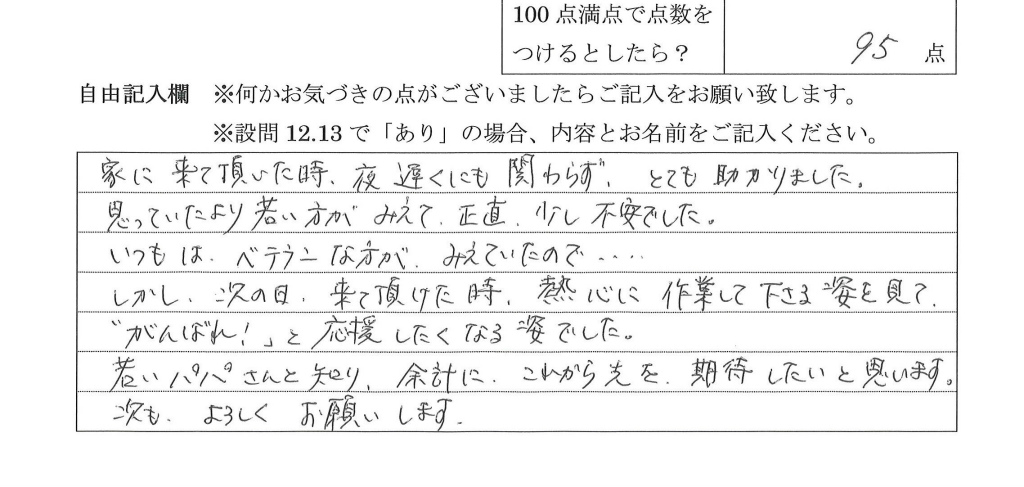 100 点満点で点数を
つけるとしたら？
95 点
自由記入欄 ※何かお気づきの点がございましたらご記入をお願い致します。
※設問 12.13 で「あり」の場合、内容とお名前をご記入ください。
家に来て頂いた時、夜遅くにも関わらず、とても助かりました。
思っていたより若い方がみえて、正直、少し不安でした。
いつもは、ベテランな方が、みえていたので・・・・
しかし、次の日、来て頂けた時、熱心に作業して下さる姿を見て、
"がんばれ！」と応援したくなる姿でした。
若いパパさんと知り、余計に、これから先を、期待したいと思います。
次も、よろしくお願いします。